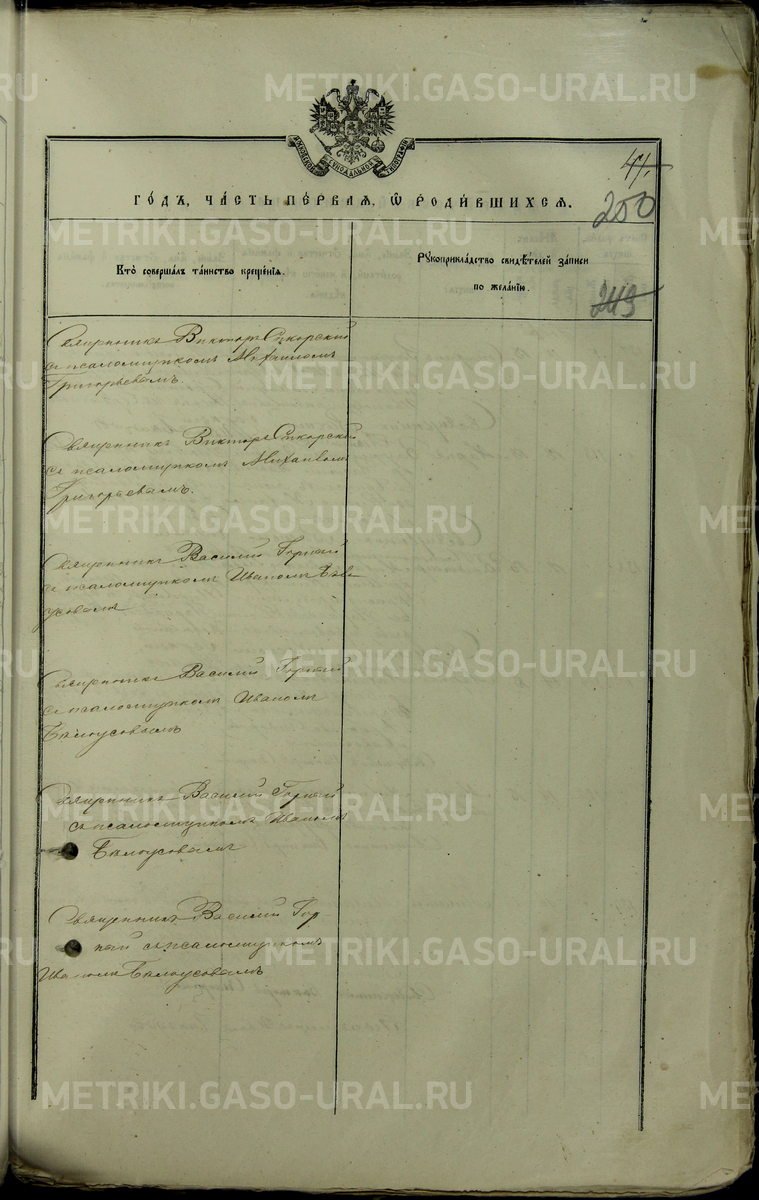 МОСКОВСКОЙ СѴНОДАЛЬНОЙ ТИПОГРАФІИ
41.
ГО́ДЪ, ЧА́СТЬ ПЕ́РВАЯ, Ѡ҆ РОДИ́ВШИХСЯ.
250
Кто̀ соверша́лъ та́инство креще́нїѧ.
Рꙋкоприкла́дство свидѣ́телей за́писи
по жела́нїю.
243
Священникъ Викторъ Сикорскій
съ псаломщикомъ Михаиломъ
Григорьевымъ.
Священникъ Викторъ Сикорскій
съ псаломщикомъ Михаиломъ
Григорьевымъ.
Священникъ Василій Горный
съ псаломщикомъ Иваномъ Бѣло
усовымъ
Священникъ Василій Горный
съ псаломщикомъ Иваномъ
Бѣлоусовымъ
Священникъ Василій Горный
съ псаломщикомъ Иваномъ
Бѣлоусовымъ
Священникъ Василій Гор
ный съ псаломщикомъ
Иваномъ Бѣлоусовымъ
METRIKI.GASO-URAL.RU